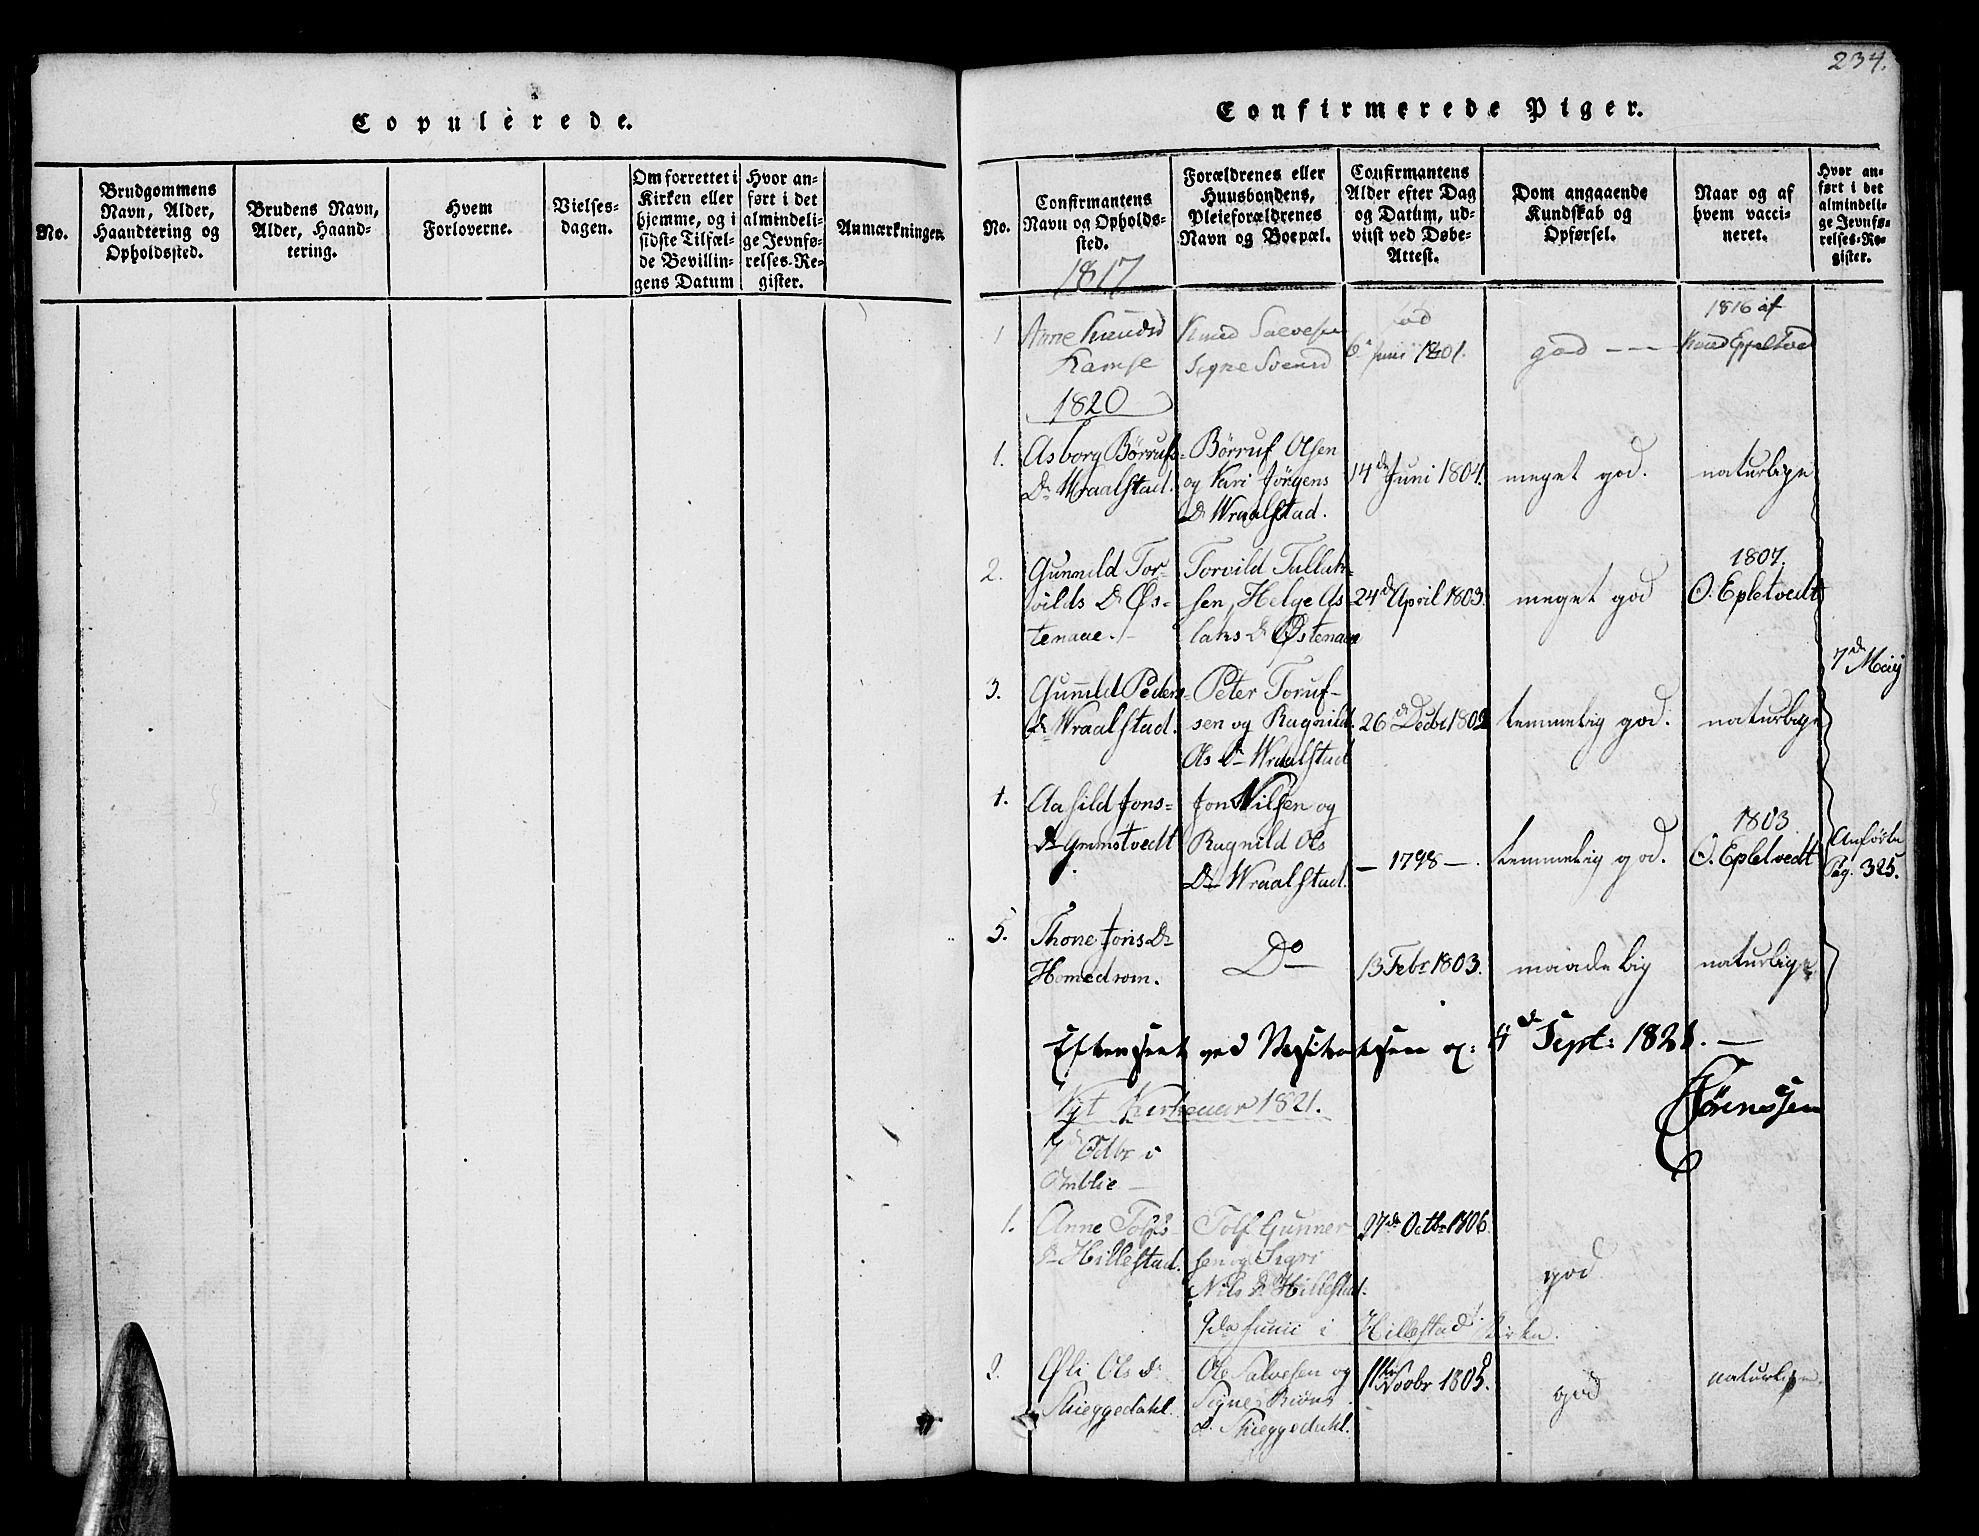 Copulerede.
No.
Brudgommens
Navn, Alder,
Haandtering og
Opholdssted.
Brudens Navn,
Alder, Haand-
tering.
Hvem
Forloverne.
Vielses-
dagen.
Om forrettet i
Kirken eller
hjemme, og i
sidste Tilfæl-
de Bevillin-
gens Datum
Hvor an-
ført i det
almindeli-
ge Jevnfø-
relses-Re-
gister.
Anmærkninger.
234.
Confirmerede Piger.
No.
Confirmantens
Navn og Opholds-
sted.
Forældrenes eller
Huusbondens,
Pleieforældrenes
Navn og Boepæl.
Confirmantens
Alder efter Dag
og Datum, ud-
viist ved Døbe-
Attest.
Dom angaaende
Kundskab og
Opførsel.
Naar og af
hvem vacci-
neret.
Hvor an-
ført i det
almindeli-
ge Jevnfø-
relses-Re-
gister.
1817
1
Anne Knudsd
Ramse
Knud Salvesen
Signe Svensd
fød
6 Juni 1801.
god ---
1816 af
Knud Epeltved
1820
1.
Asborg Børrufs-
Dr Wraalstad.
Børruf Olsen
og Kari Jörgens
Dr Wraalstad.
14de Juni 1804.
meget god.
naturlige
2.
Gunnild Tor-
vilds Dr Øs-
tenaae.
Torvild Tallak-
sen, Helge As-
laks Dr Østenaae
24de April 1803.
meget god
1807.
O. Epletvedt
7de Maij
3.
Gunnild Peders-
Dr Wraalstad.
Peter Toruf-
sen og Ragnild
Ols Dr Wraalstad
26de Decbr 1802
temmelig god.
naturlige
4.
Aasild Jons-
Dr Grimstvedt
Jon Nilsen og
Ragnild Ols
Dr Wraalstad.
- 1798 -.
temmelig god.
1803
O. Epletvedt
Anførte
Pag. 325.
5.
Thone Jons Dr
Homdrom.
Do
13 Febr 1803.
maadelig
naturlige.
Efterseet ved Visitatsen d: 4de Sept: 1821. -
Sörenssen
Nÿt Kirkeaar 1821.
7de Octbr i
Omblie -
1.
Anne Tolfs
Dr Hillestad.
Tolf Gunner
sen og Sigri
Nils Dr Hillestad.
27de Octbr 1806.
god
9de Junii i Hillestad Kirke.
2.
Øli Ols Dr
Skieggedahl.
Ole Salvesen og
Signe Biöns
Dr Skieggedahl.
11te Novbr 1805.
god
naturlige.